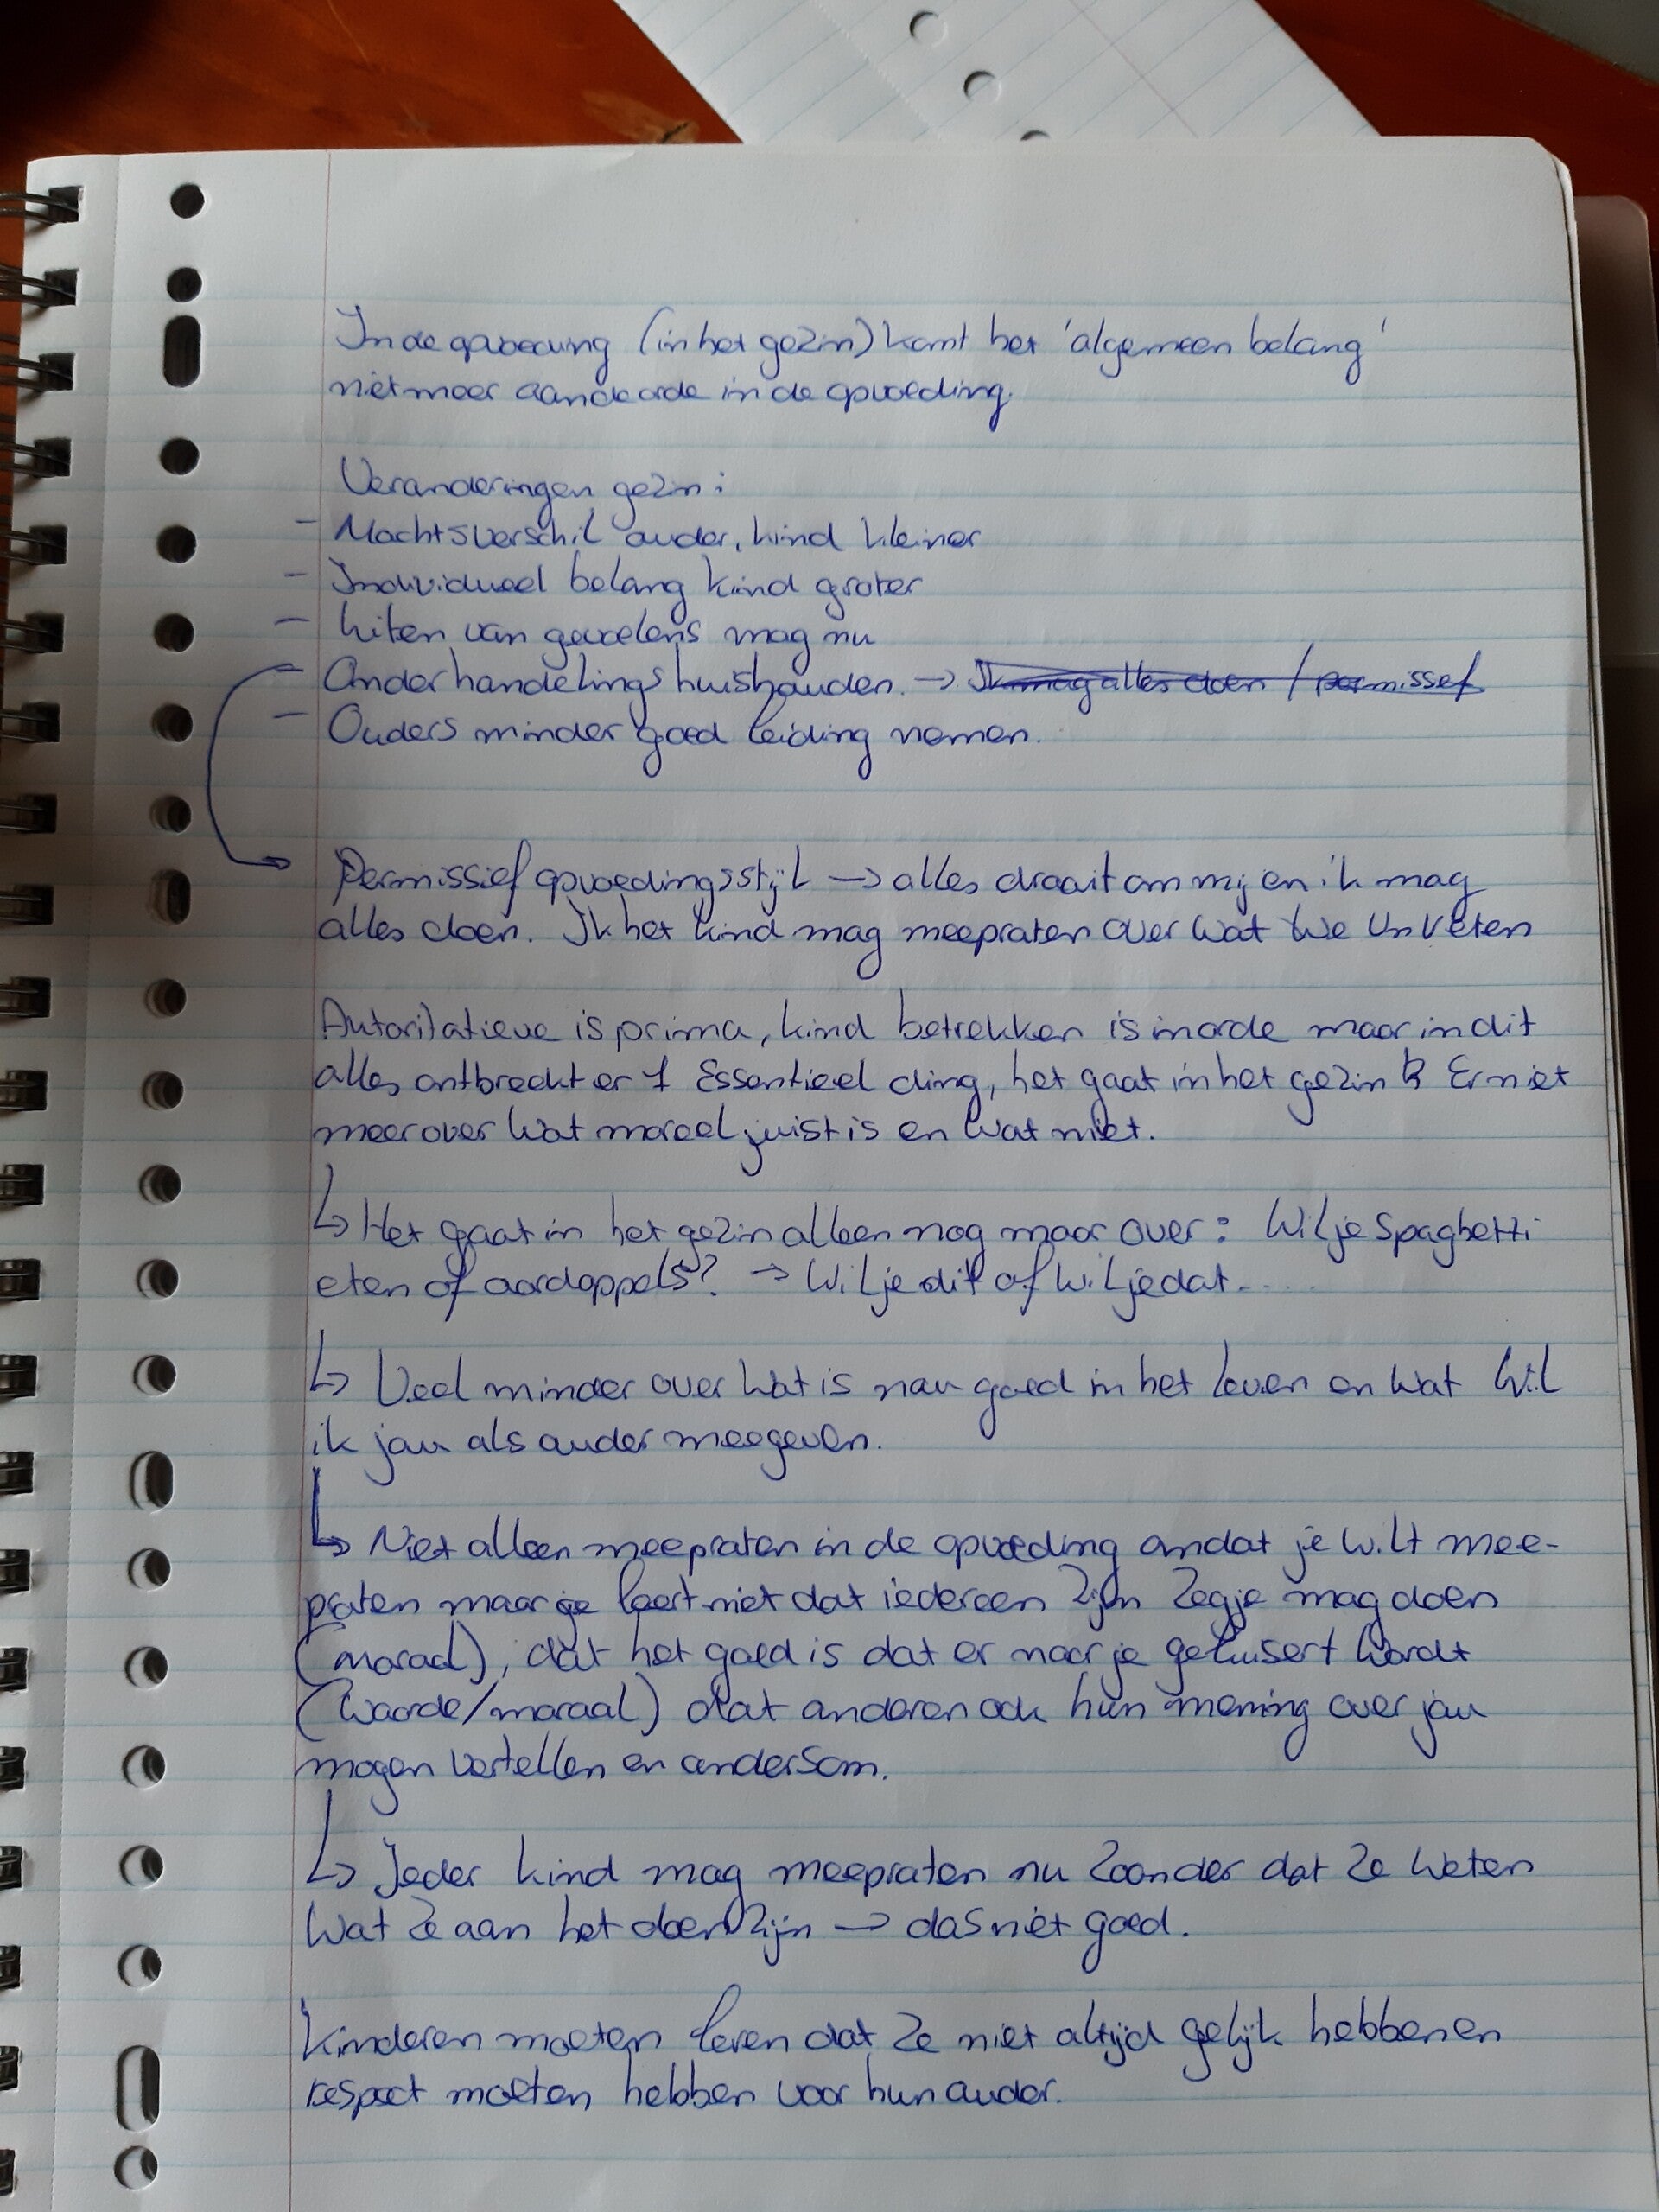 In de opvoeding (in het gezin) komt het 'algemeen belang'
niet meer aan de orde in de opvoeding.
Veranderingen gezin:
- Machtsverschil ouder, kind kleiner
- Individueel belang kind groter
- Uiten van gevoelens mag nu
- Onderhandelingshuishouden. → Ik mag alles doen / permissef
- Ouders minder goed leiding nemen.
Permissief opvoedingsstijl → alles draait om mij en ik mag
alles doen. Ik het kind mag meepraten over wat we eten
Autoritatieve is prima, kind betrekken is in orde maar in dit
alles ontbreekt er 1 Essentieel ding, het gaat in het gezin Er niet
meer over wat moreel juist is en wat niet.
↳ Het gaat in het gezin alleen nog maar over: Wil je spaghetti
eten of aardappels? → Wil je dit of wil je dat....
↳ Veel minder over wat is nou goed in het leven en wat wil
ik jou als ouder meegeven.
↳ Niet alleen meepraten in de opvoeding omdat je wilt mee-
praten maar je leert niet dat iedereen zijn zegje mag doen
(moraal), dat het goed is dat er naar je geluisert wordt
(waarde/moraal) dat anderen ook hun mening over jou
mogen vertellen en andersom.
↳ Ieder kind mag meepraten nu zoonder dat ze weten
wat ze aan het doen zijn → das niet goed.
Kinderen moeten leren dat ze niet altijd gelijk hebben en
respect moeten hebben voor hun ouder.